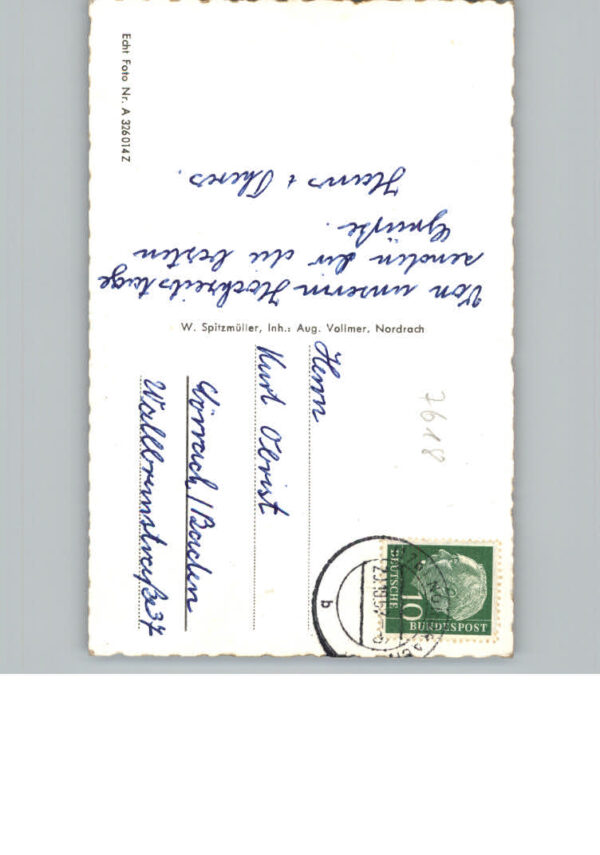 Echt Foto Nr. A 326014 Z
Von unserm Hochzeitstage
senden dir die besten
Grüße.
Hans + Theres.
W. Spitzmüller, Inh.: Aug. Vollmer, Nordrach
Herrn
Kurt Obrist
Lörrach / Baden
Wallbrunnstraße 37
7618
10
DEUTSCHE
BUNDESPOST
b